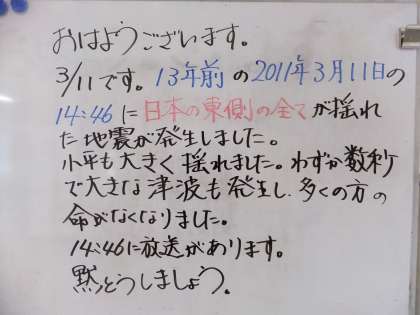 おはようございます。
3/11です。13年前の2011年3月11日の
14:46に日本の東側の全てが揺れ
た地震が発生しました。
小平も大きく揺れました。わずか数秒
で大きな津波も発生し、多くの方の
命がなくなりました。
14:46に放送があります。
黙とうしましょう。